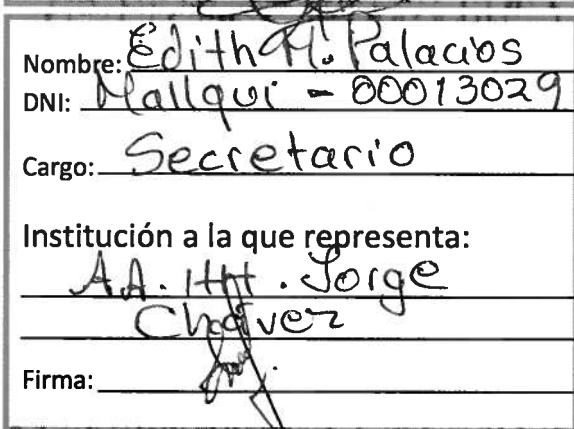 Nombre: Edith M. Palacios
DNI: Mallqui - 00013029
Cargo: Secretario
Institución a la que representa:
AA. HH. Jorge
Chavez
Firma: